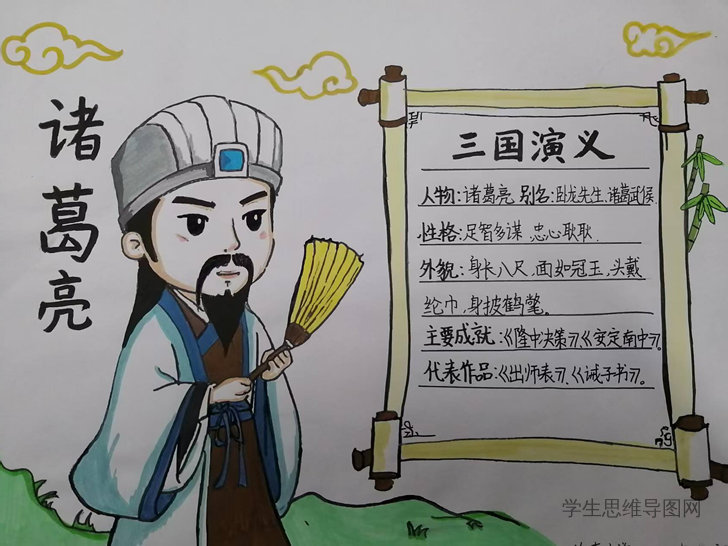 诸葛亮
三国演义
人物:诸葛亮 别名:卧龙先生、诸葛武侯.
性格:足智多谋 忠心耿耿.
外貌:身长八尺,面如冠玉,头戴
纶巾,身披鹤氅。
主要成就:《隆中决策》《安定南中》。
代表作品:《出师表》、《诫子书》。
学生思维导图网